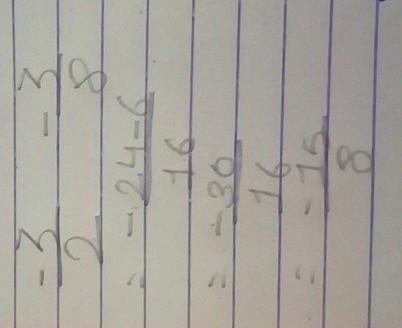 -3/2 - 3/8
= -24-6/16
= -30/16
= -15/8